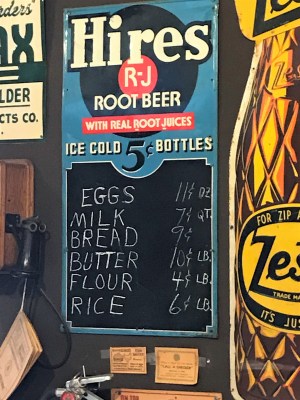 rders'
AX
LDER
CTS CO.
Hires
R-J
ROOT BEER
WITH REAL ROOT JUICES
ICE COLD 5¢ BOTTLES
EGGS 11¢ DZ.
MILK 7¢ QT.
BREAD 9¢
BUTTER 10¢ LB.
FLOUR 4¢ LB.
RICE 6¢ LB.
Ze
FOR ZIP
Zes
TRADE MA
IT'S JUS